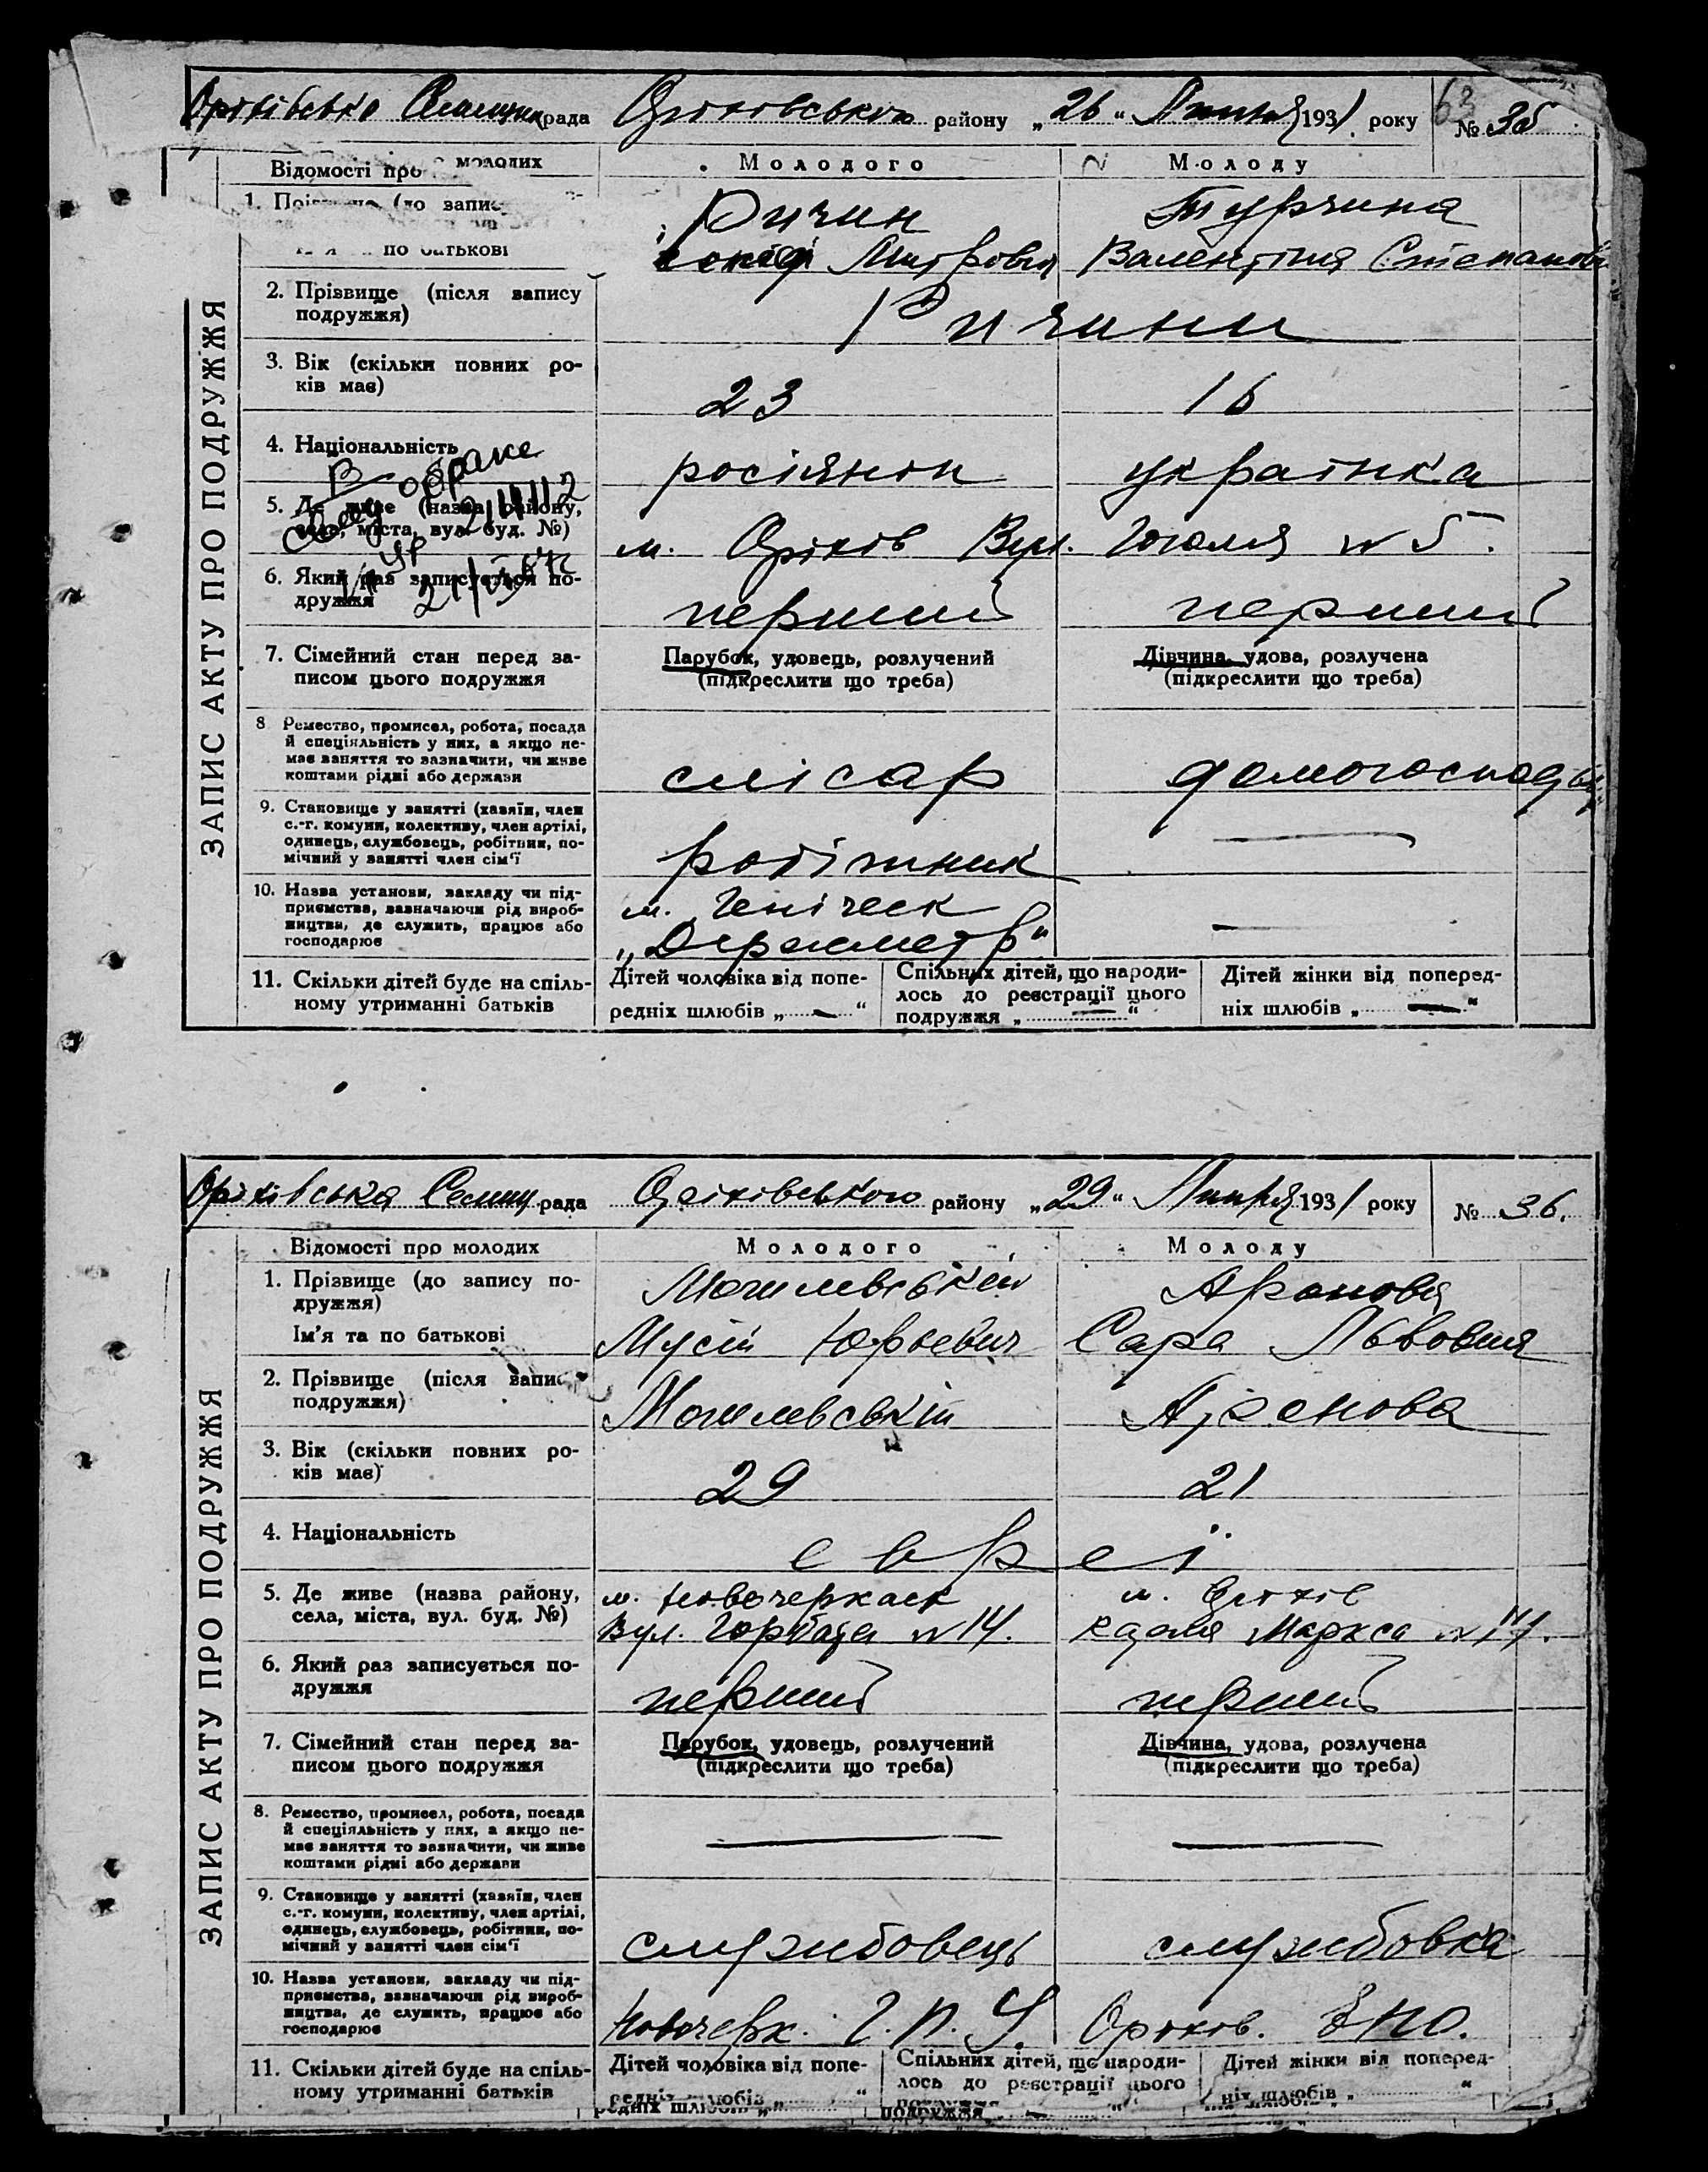 Оріхівська Селищн рада Оріхівського району „26“ Липня 1931 року 63 № 35
Відомості про молодих Молодого Молоду
1. Прізвище (до запис
Ричин Турчина
по батькові Митрович Валентина Степановн
2. Прізвище (після запису подружжя) Ричини
3. Вік (скільки повних років має) 23 16
4. Національність росіянин українка
В браке
5. Де живе (назва району, села, міста, вул. буд. №) м. Оріхів Вул. Гоголя № 5.
6. Який раз записується подружжя перший перший
7. Сімейний стан перед записом цього подружжя Парубок, удовець, розлучений (підкреслити що треба) Дівчина, удова, розлучена (підкреслити що треба)
8. Ремество, промисел, робота, посада й спеціяльність у них, а якщо немає заняття то зазначити, чи живе коштами рідні або держави слісар домогоспод
9. Становище у занятті (хазяїн, член с.-г. комуни, колективу, член артілі, одинець, службовець, робітник, помічний у занятті член сім'ї робітник —
10. Назва установи, закладу чи підприємства, зазначаючи рід виробництва, де служить, працює або господарює м. Генічеськ —
11. Скільки дітей буде на спільному утриманні батьків Дітей чоловіка від попередніх шлюбів „—“ Спільних дітей, що народилось до реєстрації цього подружжя „—“ Дітей жінки від попередніх шлюбів „—“
ЗАПИС АКТУ ПРО ПОДРУЖЖЯ
Оріхівська Селищ рада Оріхівського району „29“ Липня 1931 року № 36.
Відомості про молодих Молодого Молоду
1. Прізвище (до запису подружжя) Могилевський Аронова
Ім'я та по батькові Мусій Юрьевич Сара Львовня
2. Прізвище (після запис подружжя) Могилевський Аронова
3. Вік (скільки повних років має) 29 21
4. Національність євреї
5. Де живе (назва району, села, міста, вул. буд. №) м. Новочеркаск м. Оріхів
Вул. № 14. Карля Маркса №
6. Який раз записується подружжя перший перший
7. Сімейний стан перед записом цього подружжя Парубок, удовець, розлучений (підкреслити що треба) Дівчина, удова, розлучена (підкреслити що треба)
8. Ремество, промисел, робота, посада й спеціяльність у них, а якщо немає заняття то зазначити, чи живе коштами рідні або держави — —
9. Становище у занятті (хазяїн, член с.-г. комуни, колективу, член артілі, одинець, службовець, робітник, помічний у занятті член сім'ї службовець службовка
10. Назва установи, закладу чи підприємства, зазначаючи рід виробництва, де служить, працює або господарює Новочерк. Г.П.У. Оріхів.
11. Скільки дітей буде на спільному утриманні батьків Дітей чоловіка від попередніх шлюбів „ “ Спільних дітей, що народилось до реєстрації цього подружжя „—“ Дітей жінки від попередніх шлюбів „ “
ЗАПИС АКТУ ПРО ПОДРУЖЖЯ